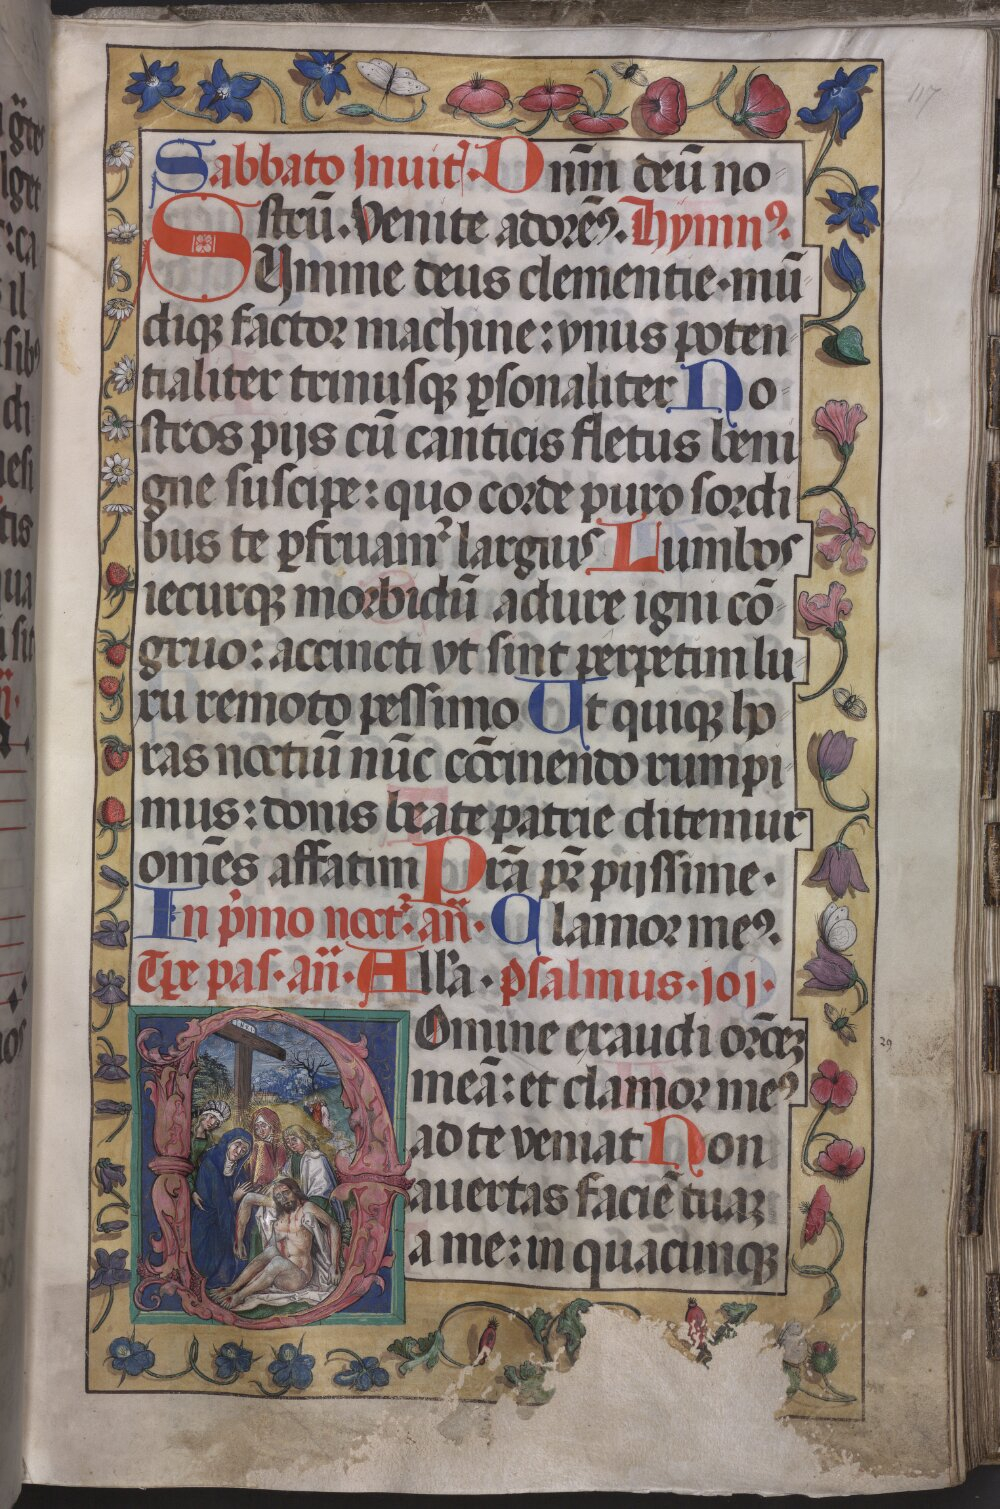 117
Sabbato Inuit᷑. Dnm̄ deū no
strū. Venite adorem̄ꝰ. Hymnꝰ.
SUmme deus clementie. mū
diqꝫ factor machine: vnus poten
tialiter trinusqꝫ ꝑsonaliter No
stros pijs cū canticis fletus beni
gne suscipe: quo corde puro sordi
bus te ꝑfruamᷣ largius Lumbos
iecurqꝫ morbidū adure igni cō
gruo: accincti vt sint perpetim lu
xu remoto pessimo Ut quiqꝫ ho
ras noctiū nūc cōcinendo rumpi
mus: donis beate patrie ditemur
omēs affatim Prā pr̄ pijssime.
In pͥmo noct᷑. an̄. Clamor meꝰ.
Tꝑe pas. an̄. Alla. Psalmus. 101.
Domine exaudi or̄oeꝫ
meā: et clamor meꝰ
ad te veniat Non
auertas faciē tuaꝫ
a me: in quacunqꝫ
29
INRI